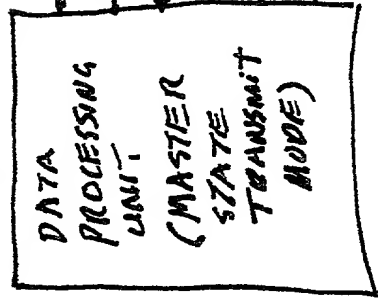 DATA
PROCESSING
UNIT
(MASTER
STATE
TRANSMIT
MODE)